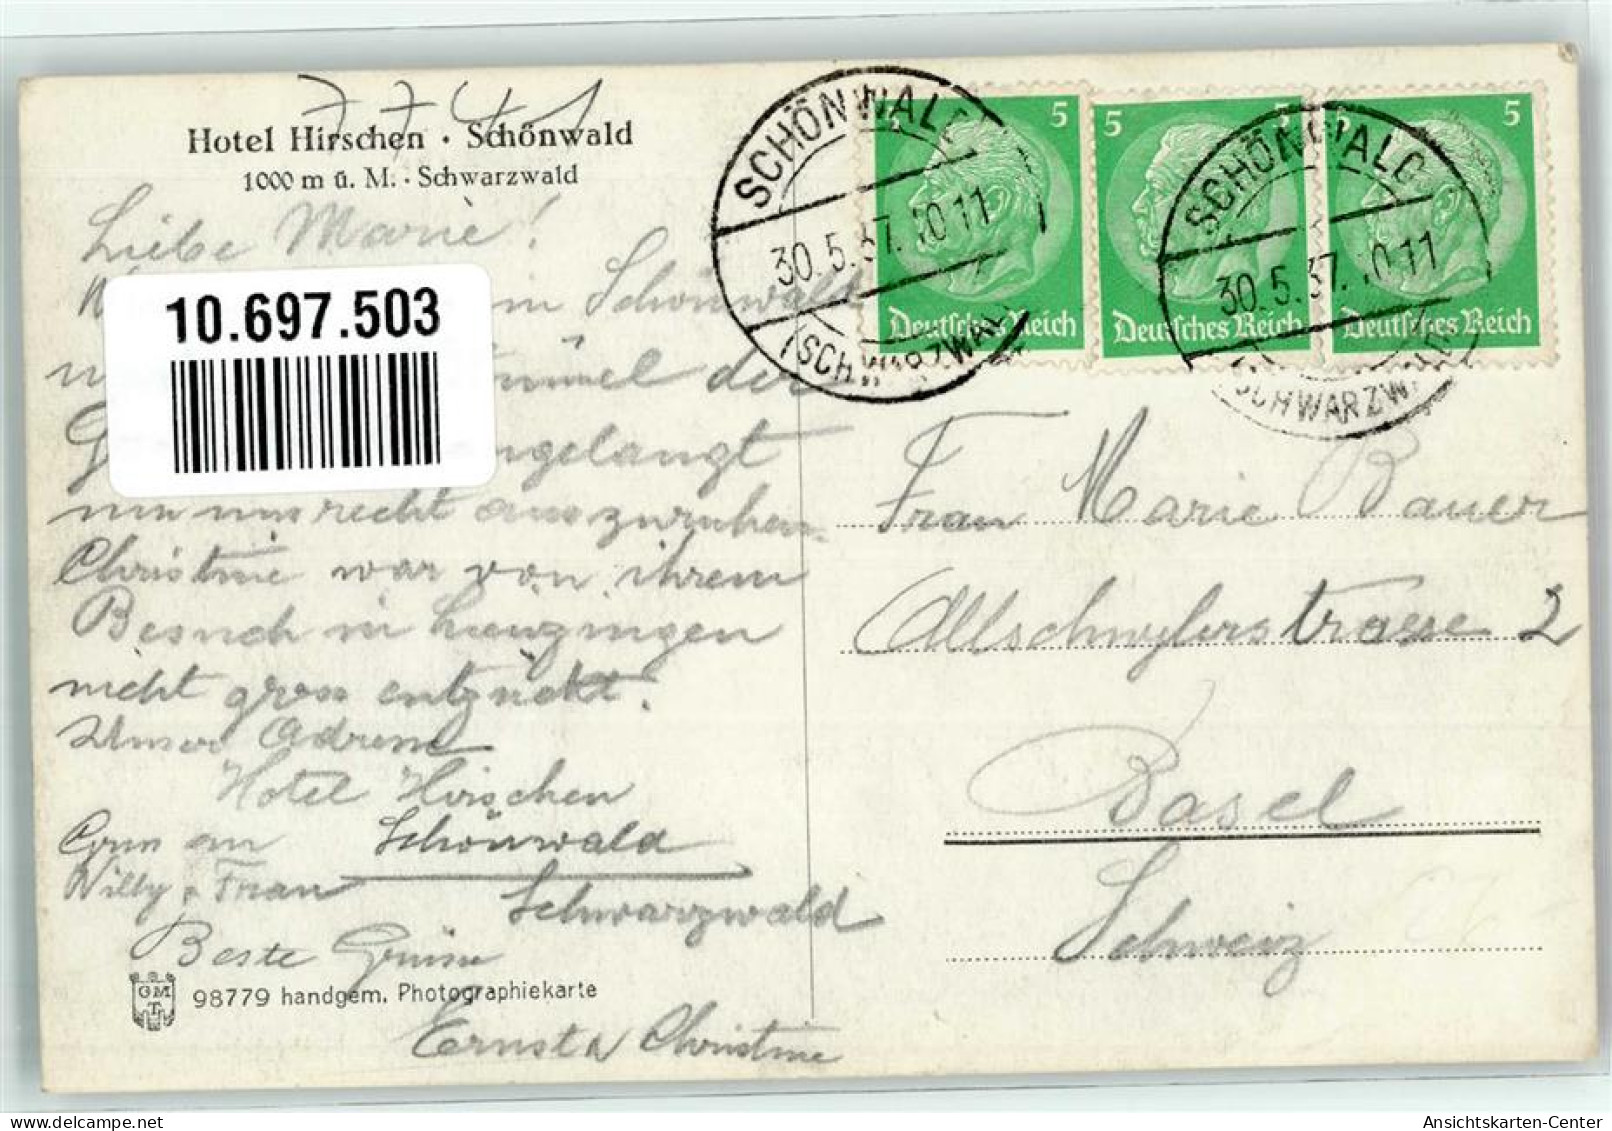 7741
Hotel Hirschen · Schönwald
1000 m ü. M. · Schwarzwald
Liebe Marie!
in Schönwald
der
10.697.503
angelangt
um uns recht auszuruhen.
Christine war von ihrem
Besuch in
nicht gross entzückt.
Unser Adresse
Hotel Hirschen
Schönwald
Schwarzwald
an
Willy & Frau
Beste Grüsse
Ernst & Christine
GMT
98779 handgem. Photographiekarte
SCHÖNWALD
30.5.37.10-11
(SCHWARZWALD)
5
Deutsches Reich
5
Deutsches Reich
5
Deutsches Reich
SCHÖNWALD
30.5.37.10-11
(SCHWARZWALD)
Frau Marie Bauer
Allschwylerstrasse 2
Basel
Schweiz
Ansichtskarten-Center